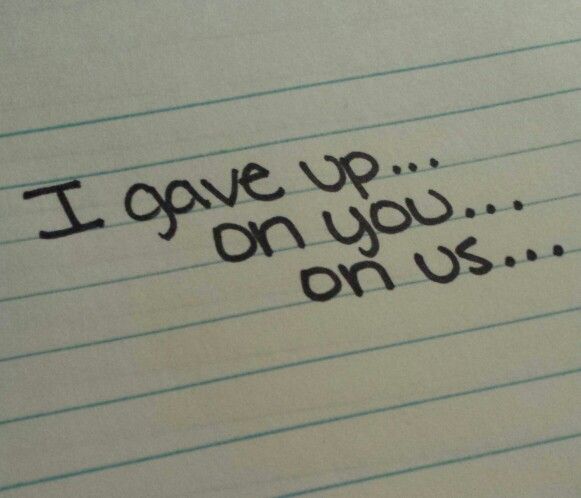 I gave up...
on you...
on us...